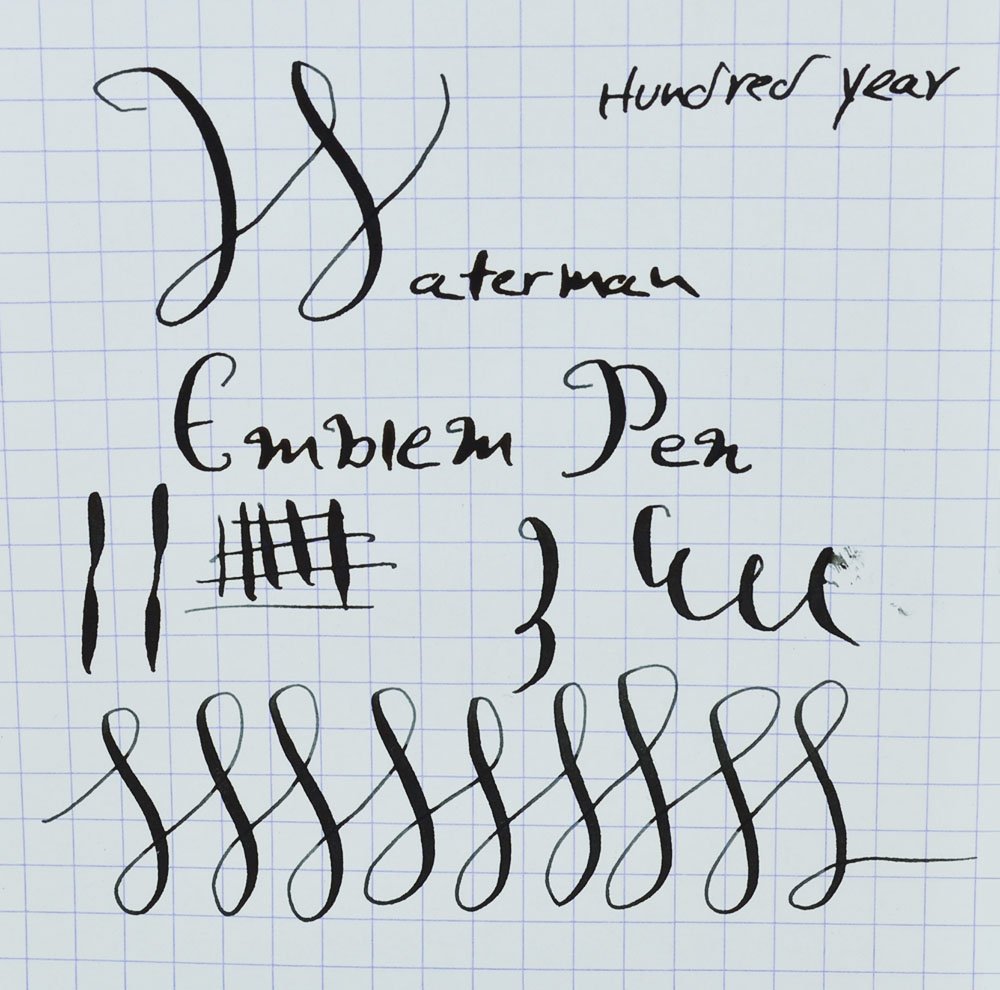 Hundred year
Waterman
Emblem Pen